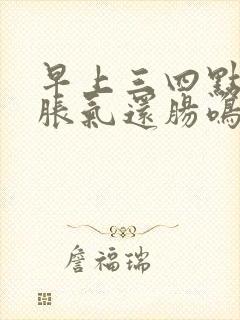 早上三四點
脹氣還腸鳴
詹福瑞